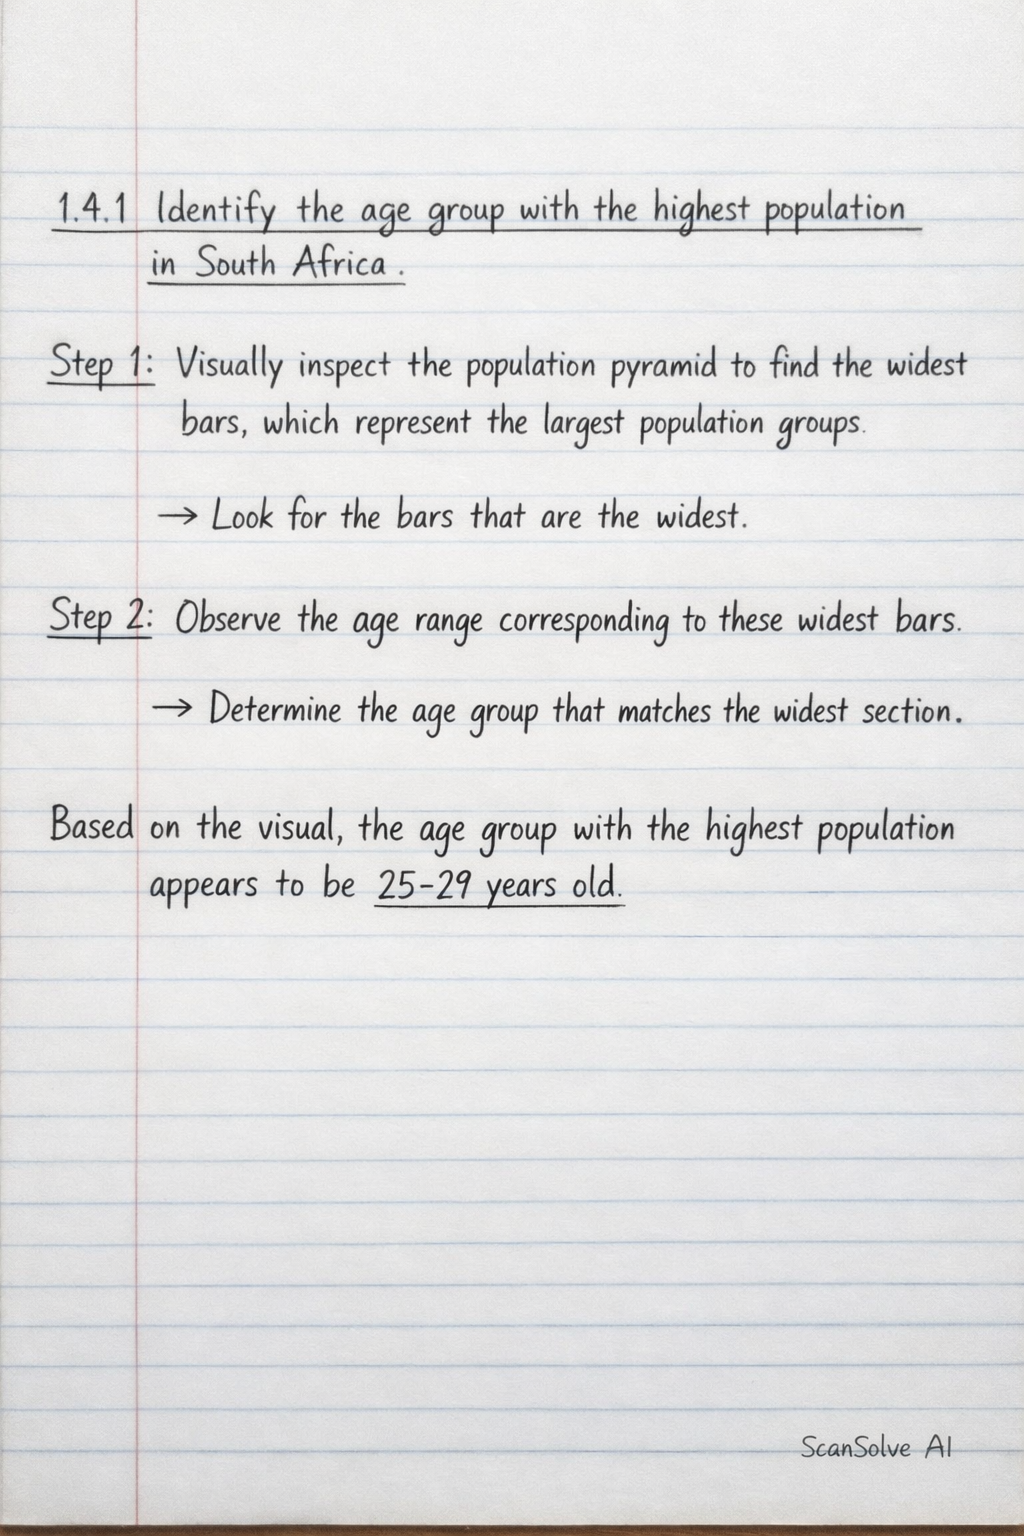 1.4.1 Identify the age group with the highest population
in South Africa.
Step 1: Visually inspect the population pyramid to find the widest
bars, which represent the largest population groups.
→ Look for the bars that are the widest.
Step 2: Observe the age range corresponding to these widest bars.
→ Determine the age group that matches the widest section.
Based on the visual, the age group with the highest population
appears to be 25-29 years old.
ScanSolve AI